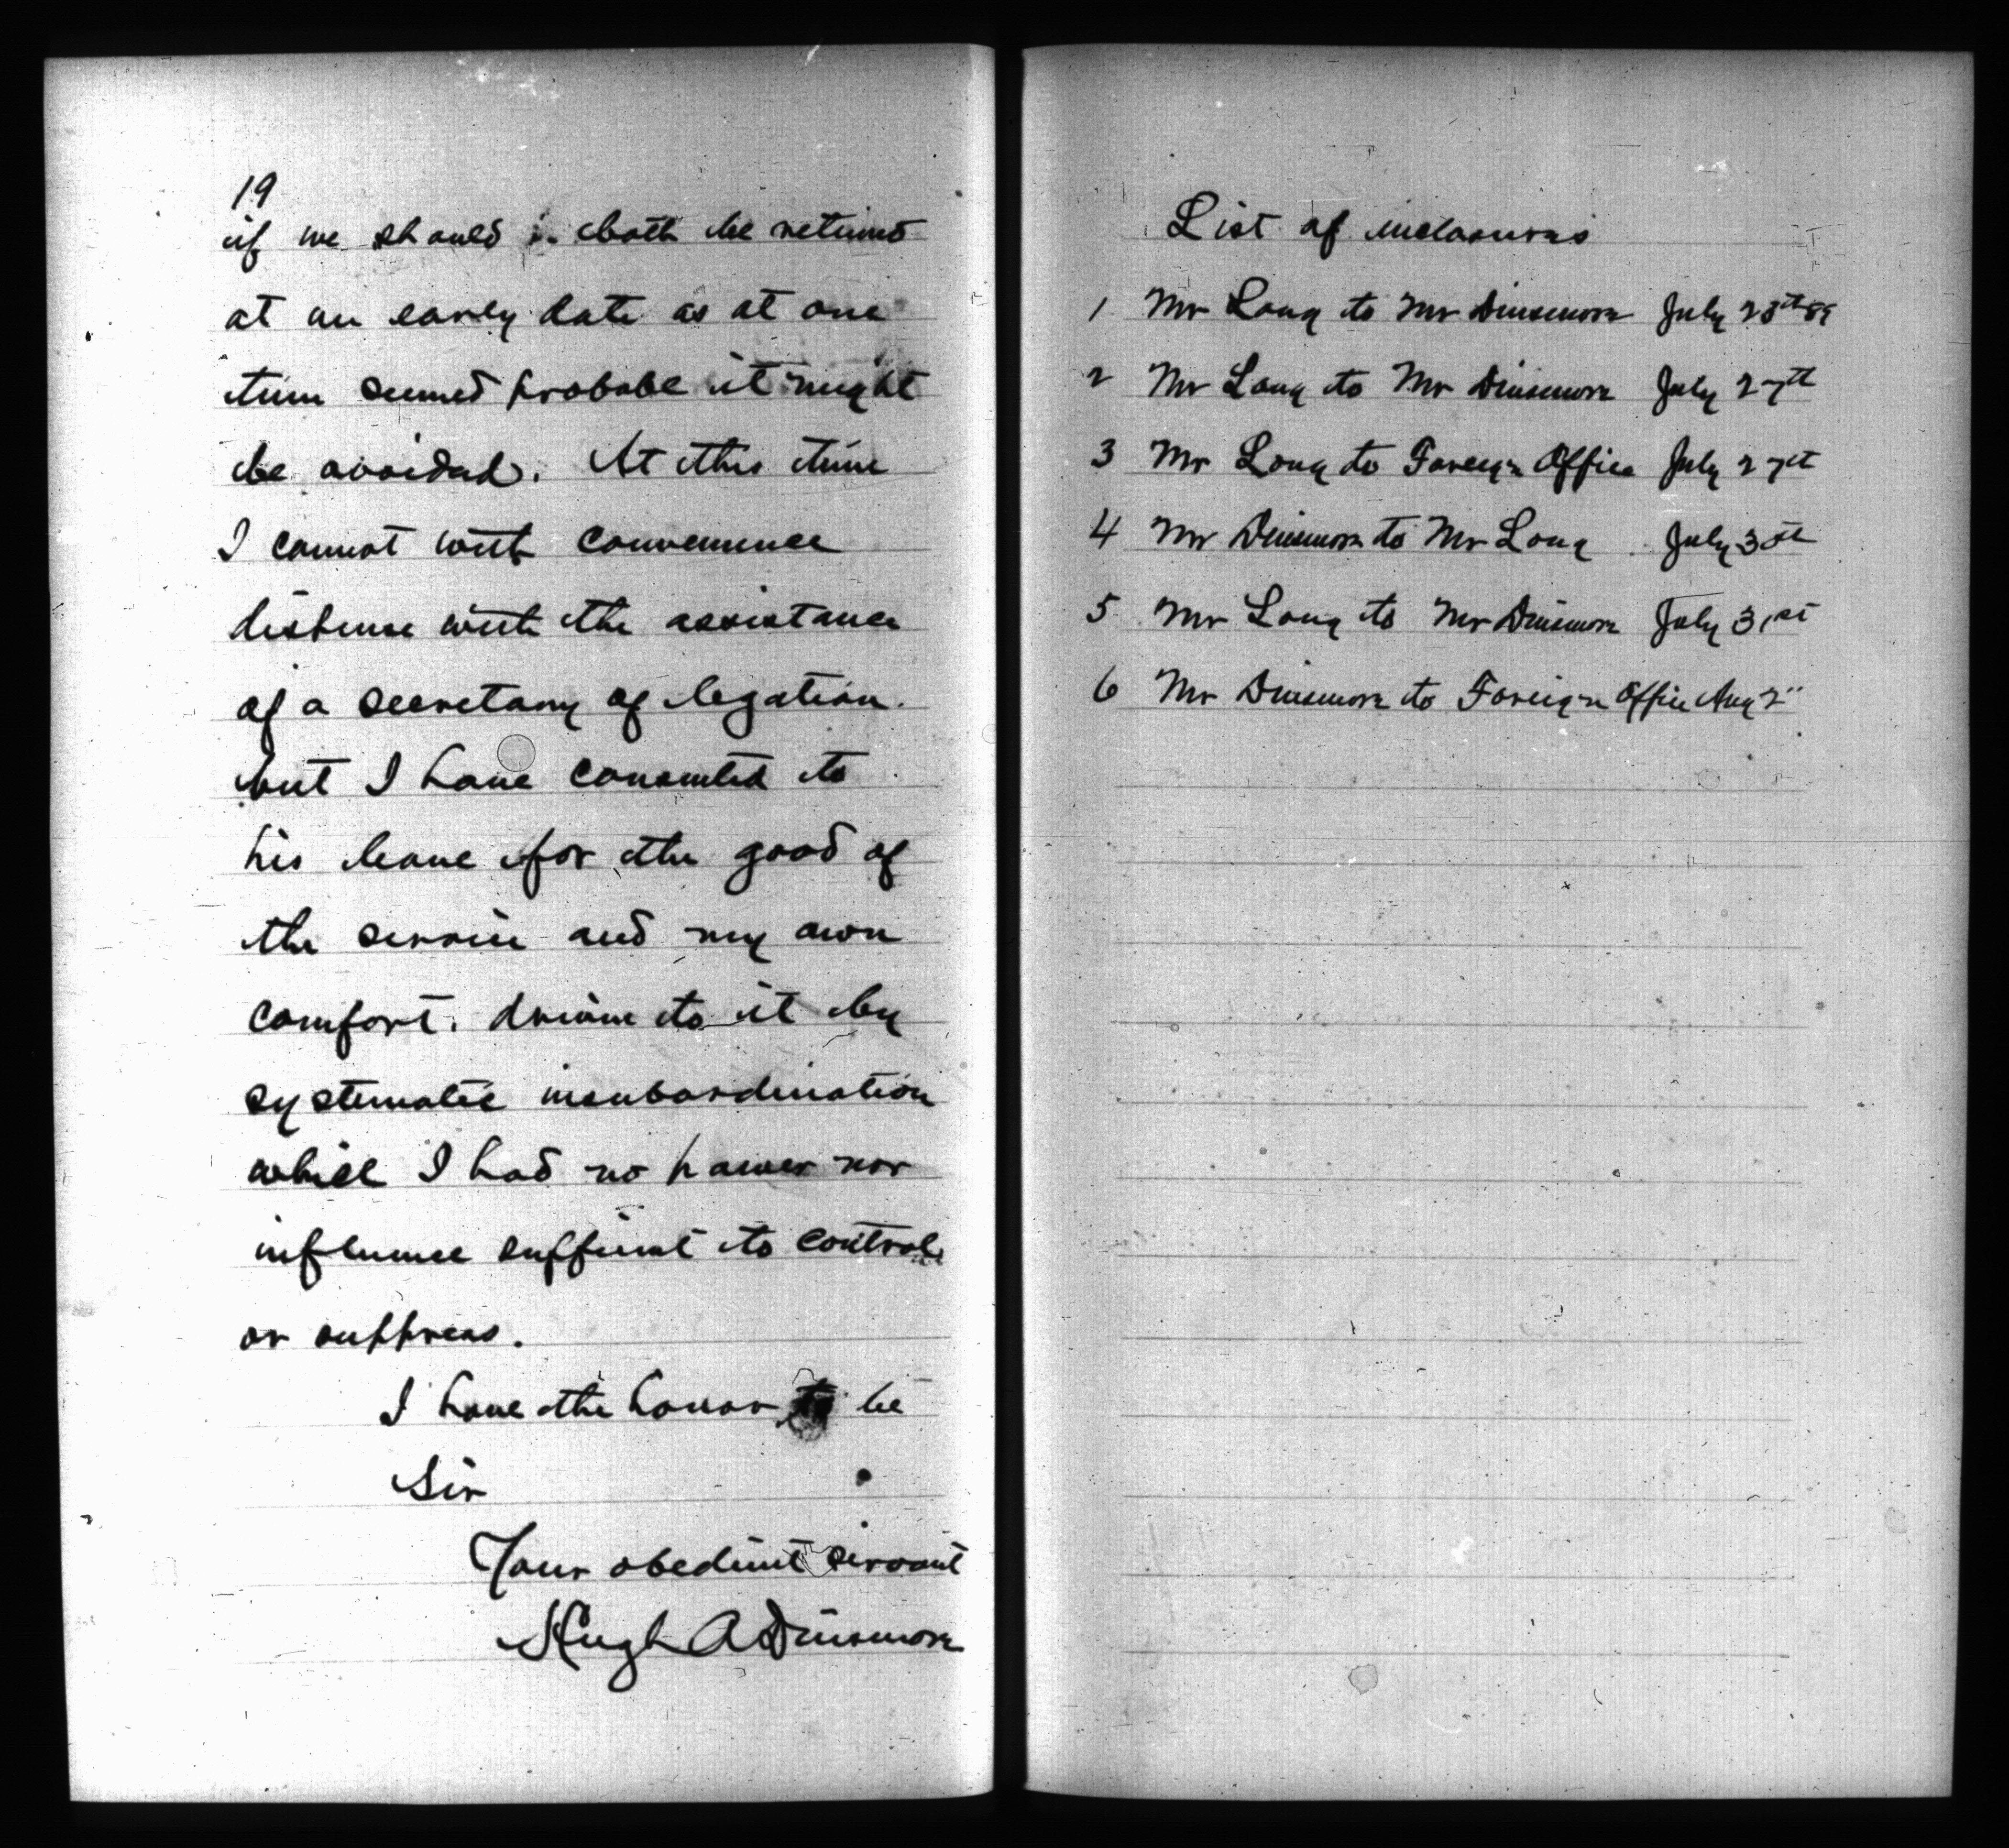 19
if we should both be retired
at an early date as at one
time seemed probabe it might
be avoided. At this time
I cannot with convenience
dispense with the assistance
of a secretary of legation.
but I have consented to
his leave for the good of
the service and my own
comfort. driven to it by
systematic insubordination
which I had no power nor
influence sufficient to control
or suppress.
I have the honor to be
Sir
Your obedient servant
Hugh A Dinsmore
List of inclosures
1 Mr Long to Mr Dinsmore July 25th 89
2 Mr Long to Mr Dinsmore July 27th
3 Mr Long to Foreign Office July 27th
4 Mr Dinsmore to Mr Long July 30th
5 Mr Long to Mr Dinsmore July 31st
6 Mr Dinsmore to Foreign Office Aug 2"